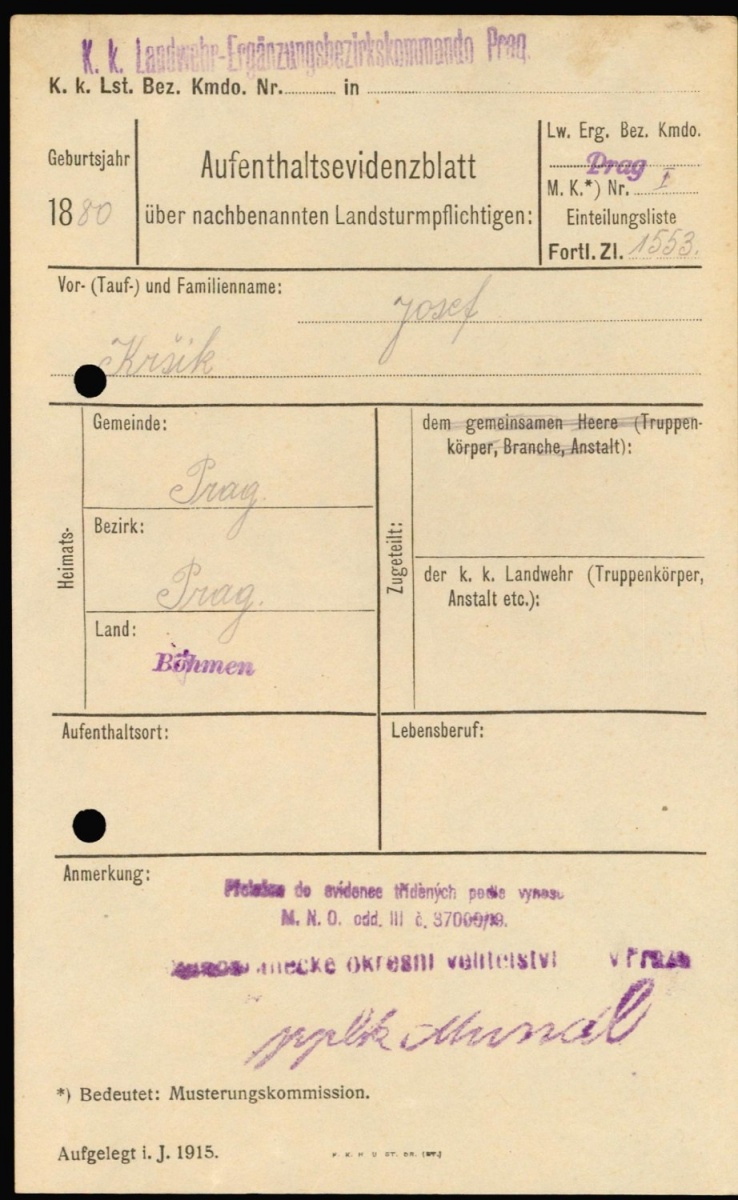 K. k. Landwehr-Ergänzungsbezirkskommando Prag.
K. k. Lst. Bez. Kmdo. Nr. in
Geburtsjahr
1880
Aufenthaltsevidenzblatt
über nachbenannten Landsturmpflichtigen:
Lw. Erg. Bez. Kmdo.
Prag
M. K.*) Nr. I
Einteilungsliste
Fortl. Zl. 1553.
Vor- (Tauf-) und Familienname:
Josef
Kršik
Heimats-
Gemeinde:
Prag.
Bezirk:
Prag.
Land:
Böhmen
Zugeteilt:
dem gemeinsamen Heere (Truppen-
körper, Branche, Anstalt):
der k. k. Landwehr (Truppenkörper,
Anstalt etc.):
Aufenthaltsort:
Lebensberuf:
Anmerkung:
do evidence tříděných podle vynosu
M. N. O. odd. III č. 37000/19.
okresní velitelství v Praze
pplk
*) Bedeutet: Musterungskommission.
Aufgelegt i. J. 1915.